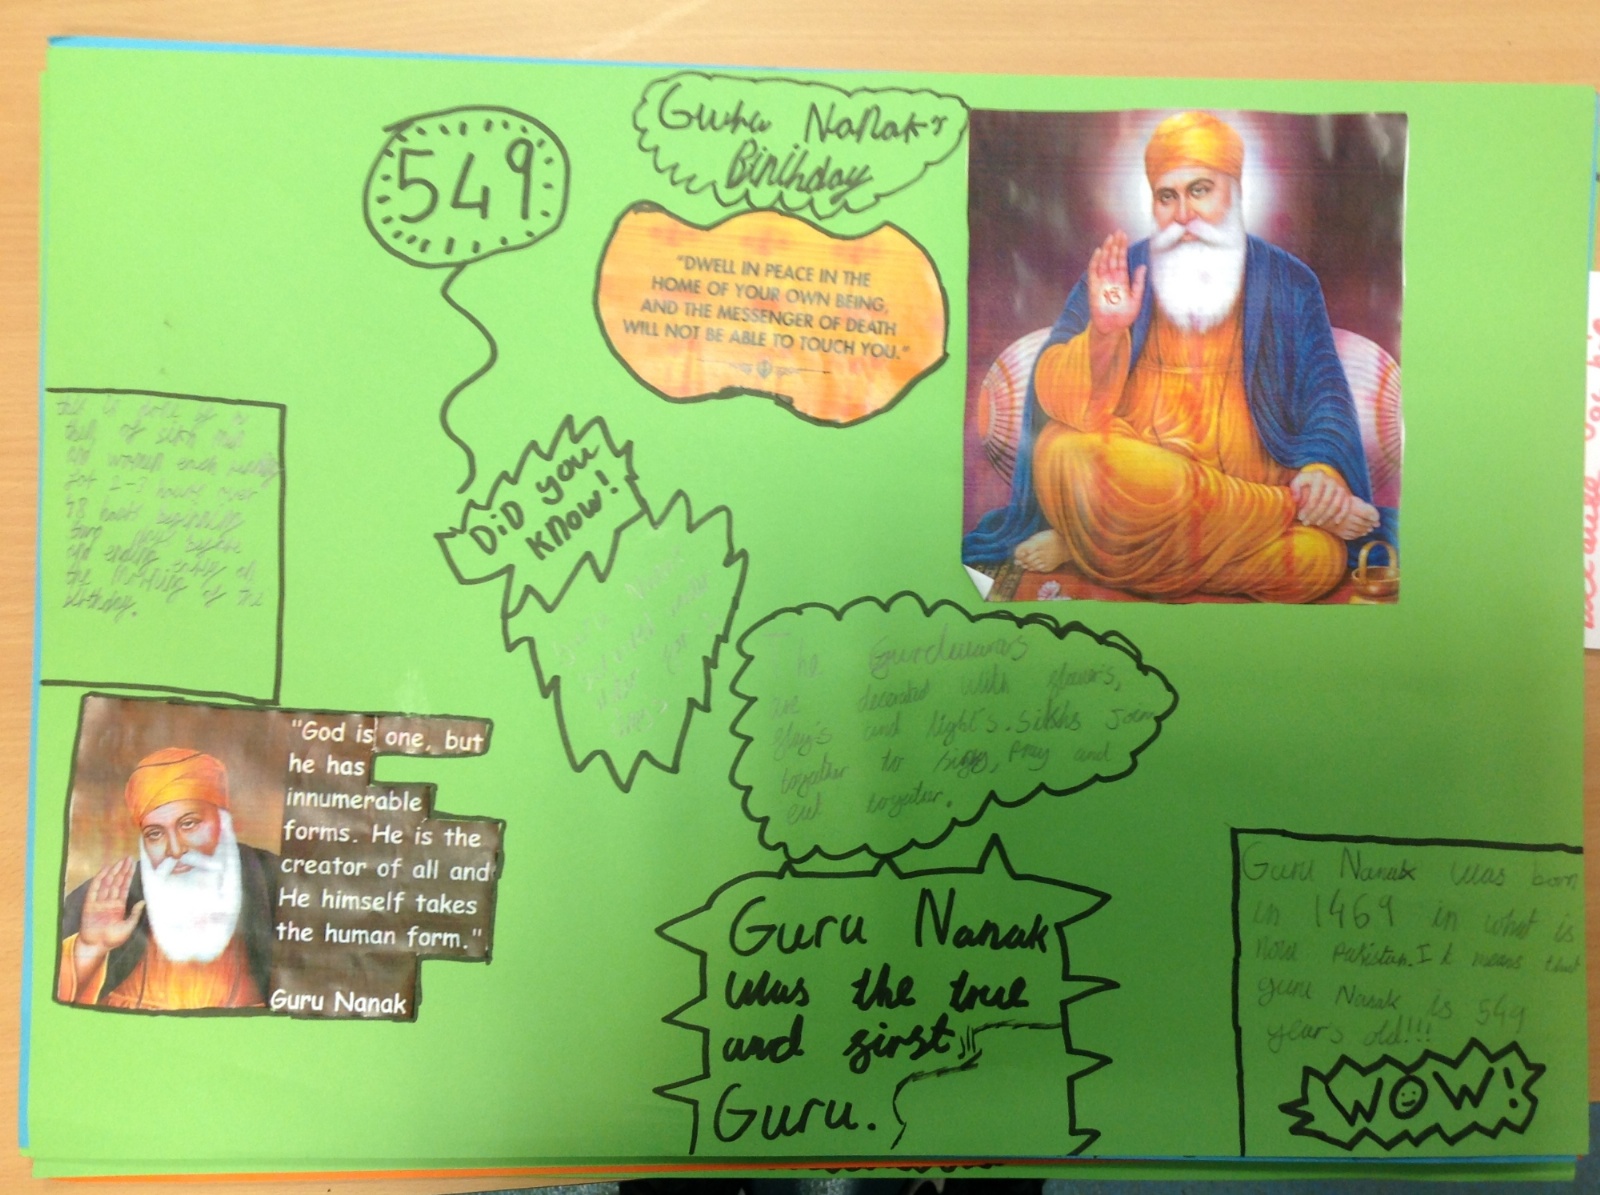 549
Guru Nanak's
Birthday
"DWELL IN PEACE IN THE
HOME OF YOUR OWN BEING,
AND THE MESSENGER OF DEATH
WILL NOT BE ABLE TO TOUCH YOU."
of
of sikh
and women each
for 2-3 hours over
48 hours beginning
days before
and ending on
the morning of the
birthday.
DiD you
know!
Guru Nanak
water
for 3
days
The Gurdwaras
are decorated with flowers,
flag's and light's. Sikhs Join
together to sing, Pray and
eat together.
"God is one, but
he has
innumerable
forms. He is the
creator of all and
He himself takes
the human form."
Guru Nanak
Guru Nanak
was the true
and first
Guru.
Guru Nanak was born
in 1469 in what is
now Pakistan. It means that
guru Nanak is 549
years old!!!
WOW!